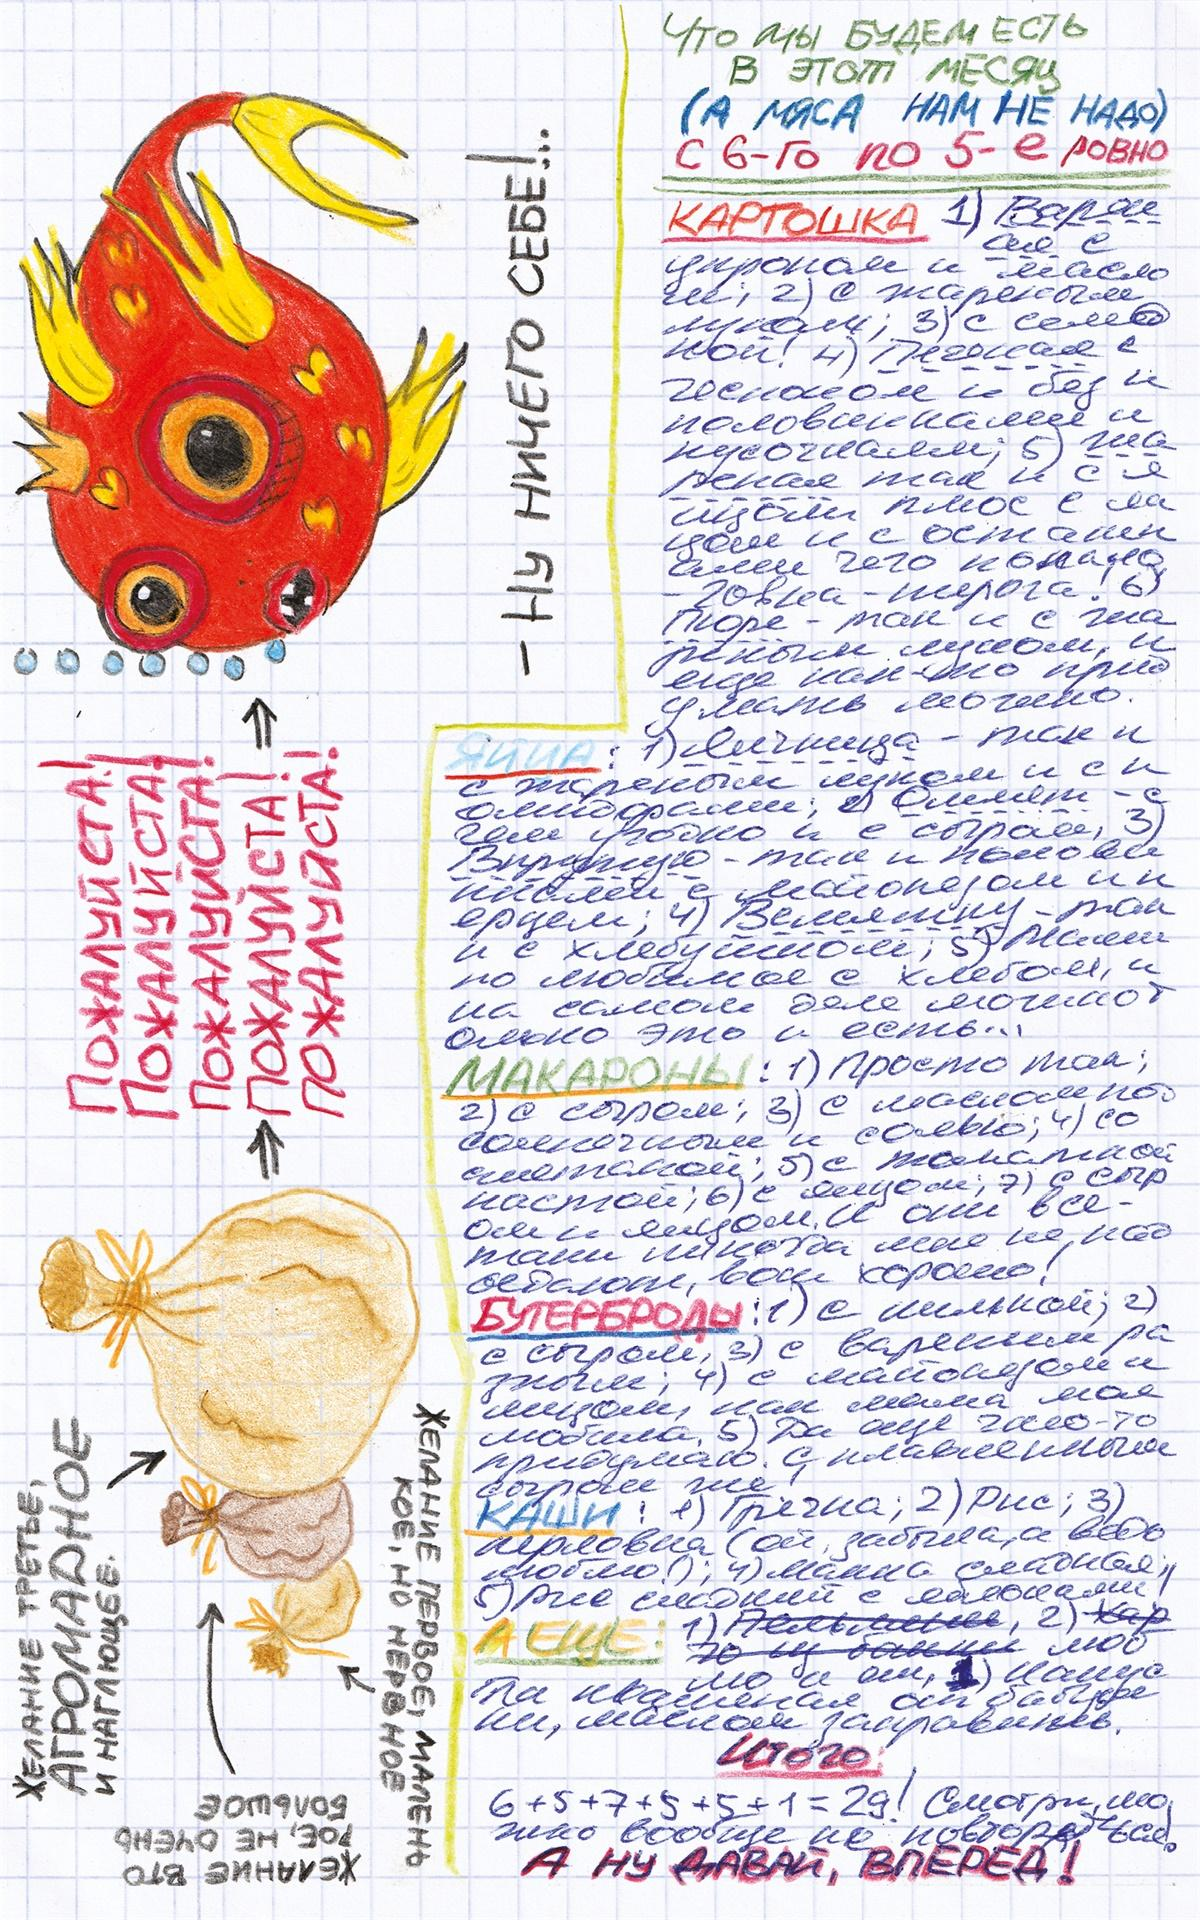 Что мы будем есть
в этот месяц
(а мяса нам не надо)
с 6-го по 5-е ровно
КАРТОШКА 1) Варен
ая с
укропом и масло
м; 2) с жареным
луком; 3) с селед
кой! 4) Печеная с
чесноком и без и
половинками и
кусочками; 5) жа
реная так и с я
йцом плюс с ла
и с останк
ами чего
6)
Пюре - так и с жа
реным луком, и
еще как-то прид
умать можно.
ЯЙЦА: 1) Яичница - так и
с жареным луком и с п
омидорами; 2) Омлет - с
чем угодно и с сыром; 3)
Вкрутую - так и полови
нками с майонезом и п
ерцем; 4) Всмятку - так
и с хлебушком; 5) Мами
но любимое с хлебом, и
на самом деле можно т
олько это и есть...
МАКАРОНЫ: 1) Просто так;
2) с сыром; 3) с маслом под
солнечным и солью; 4) со
сметаной; 5) с томатной
пастой; 6) с яйцом; 7) с сыр
ом и яйцом. И они все-
таки никогда мне не над
оедают, вот хорошо!
БУТЕРБРОДЫ: 1) с килькой; 2)
с сыром, 3) с вареньем ра
зным; 4) с майонезом и
яйцом, как мама моя
любила. 5) Да еще чего-то
придумаю. С плавленным
сыром же!
КАШИ: 1) Гречка; 2) Рис; 3)
перловка (ой, забыла, а ведь
люблю!); 4) манка сладкая;
5) Рис сладкий с яблоками!
А ЕЩЕ: 1) Пельмени, 2) Кар
из банки люб
1) Капус
та квашеная от бабуш
ки, маслом заправить.
ИТОГО:
6+5+7+5+5+1=29! Смотри, мо
жно вообще не повторяться.
А НУ ДАВАЙ, ВПЕРЕД!
- НУ НИЧЕГО СЕБЕ!..
Пожалуйста!
Пожалуйста!
Пожалуйста!
Пожалуйста!
Пожалуйста!
ЖЕЛАНИЕ ТРЕТЬЕ,
АГРОМАДНОЕ
И НАГЛЮЩЕЕ.
ЖЕЛАНИЕ ВТО
РОЕ, НЕ ОЧЕНЬ
БОЛЬШОЕ
ЖЕЛАНИЕ ПЕРВОЕ, МАЛЕНЬ
КОЕ, НО НЕРВНОЕ